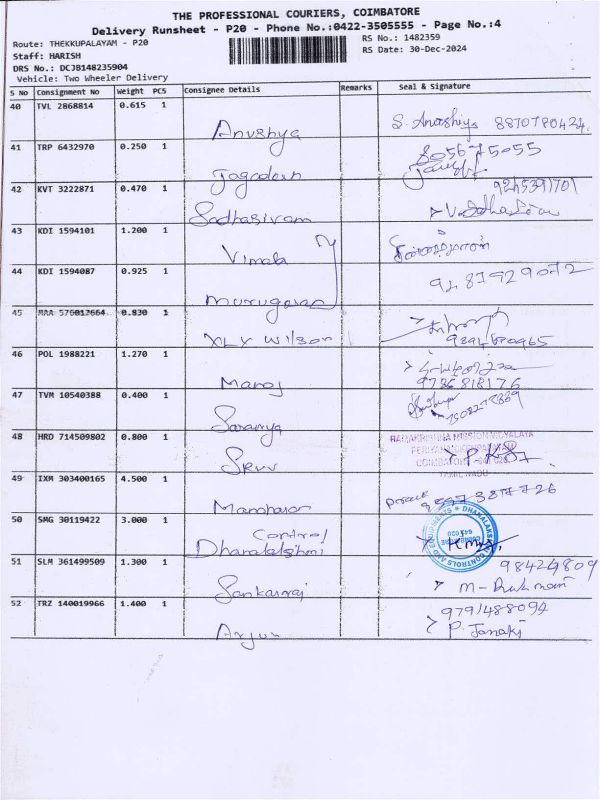 THE PROFESSIONAL COURIERS, COIMBATORE
Delivery Runsheet - P20 - Phone No.:0422-3505555 - Page No.:4
Route: THEKKUPALAYAM - P20
RS No.: 1482359
Staff: HARISH
RS Date: 30-Dec-2024
DRS No.: DCJB148235904
Vehicle: Two Wheeler Delivery
S No Consignment No Weight PCS Consignee Details Remarks Seal & Signature
40 TVL 2868814 0.615 1
Anushya 8870780424
41 TRP 6432970 0.250 1
42 KVT 3222871 0.470 1
Sadhasivam
43 KDI 1594101 1.200 1
Vimala
44 KDI 1594087 0.925 1
Murugesan
45 MAA 576012664 0.830 1
XLY Wilson
46 POL 1988221 1.270 1
Manoj 9736818176
47 TVM 10540388 0.400 1
Saranya
48 HRD 714509802 0.800 1
SRVV
RAMAKRISHNA MISSION VIDYALAYA
49 IXM 303400165 4.500 1
Manoharan
50 SMG 30119422 3.000 1
Control
Dhanalakshmi
51 SLM 361499509 1.300 1
98424809
Sankarraj
52 TRZ 140019966 1.400 1
9791488094
Arjun P. Janaki